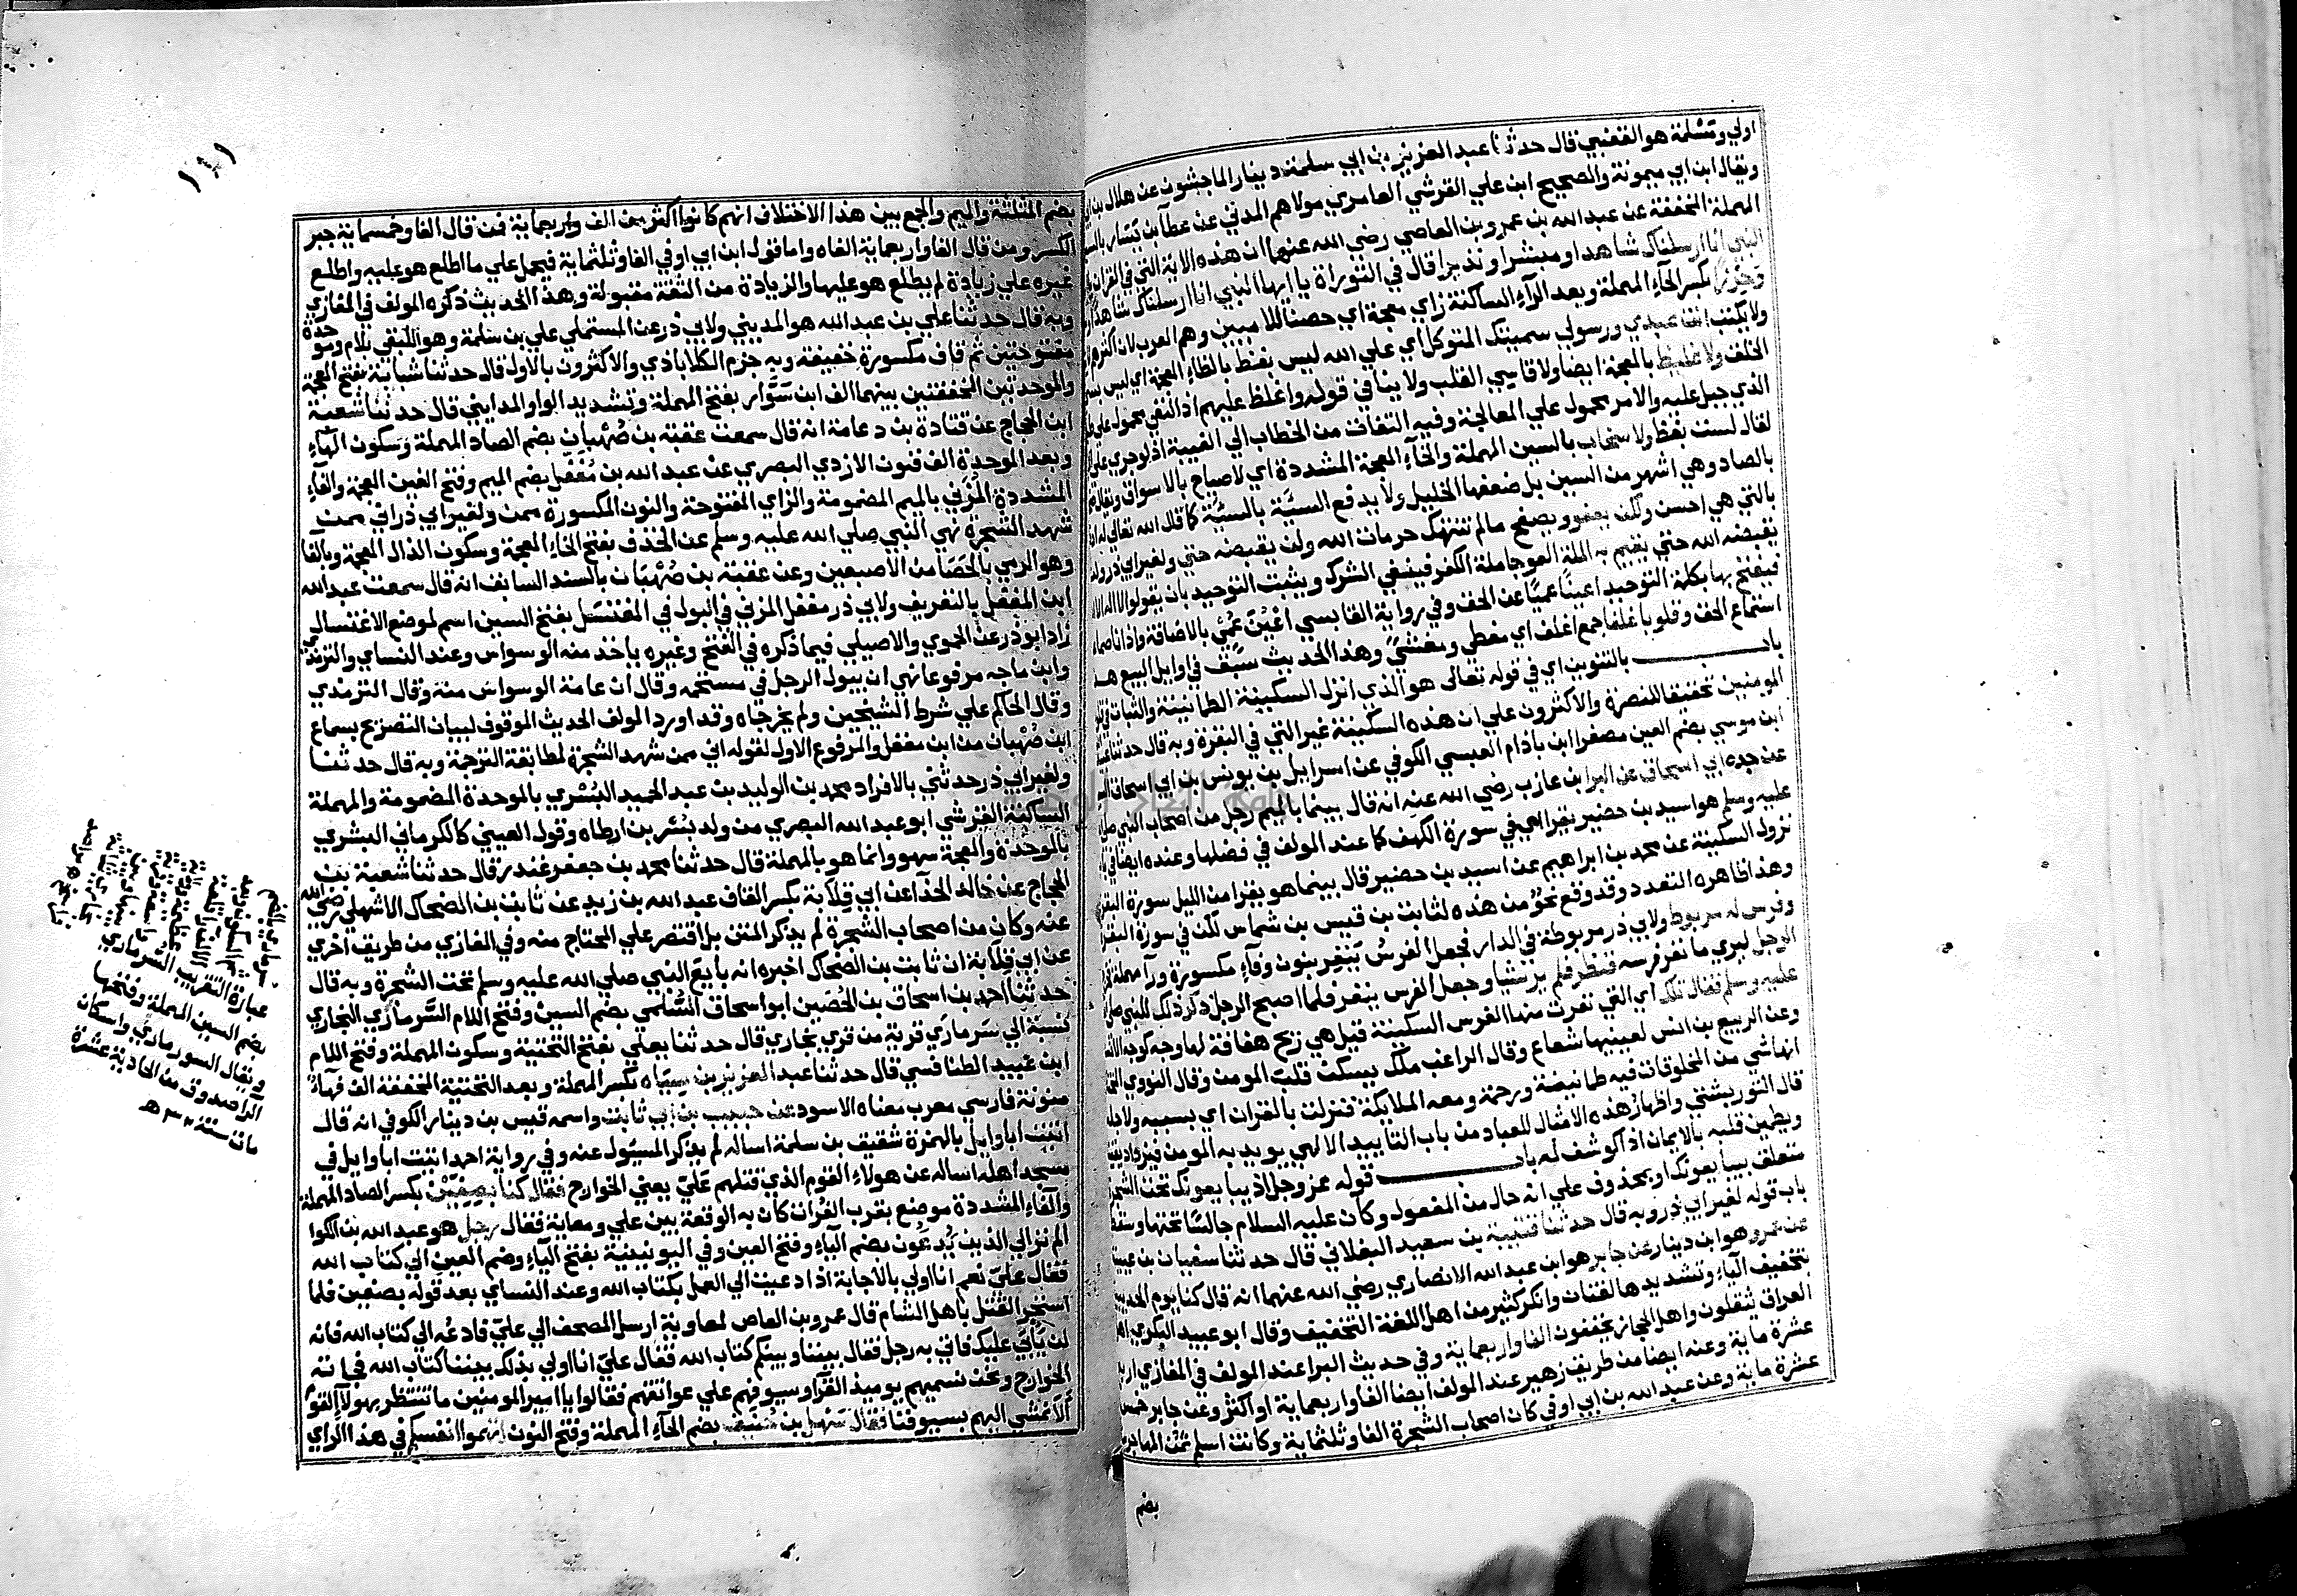 اولي ومسلمة هو القعنبي قال حدثنا عبد العزيز بن ابي سلمة دينار الماجشون عن هلال بن
ويقال ابن ابي ميمونة والصحيح ابن علي القرشي العامري مولاهم المدني عن عطآ بن يسار
المهملة المخففة عن عبد الله بن عمرو بن العاصي رضي الله عنهما ان هذه الاية التي في القران
النبي انا ارسلناك شاهدا ومبشرا ونذيرا قال في التوراة يا ايها النبي انا ارسلناك شاهدا
وحرزا بكسر الحآء المهملة وبعد الرآء الساكنة زاي معجمة اي حصنا للاميين وهم العرب لان اكثرهم
ولا يكتب انت عبدي ورسولي سميتك المتوكل اي علي الله ليس بفظ بالظاء المعجمة اي ليس
الخلق ولا غليظ بالمعجمة ايضا ولا قاسي القلب ولا ينافي قوله واغلظ عليهم اذ النفي محمول علي
الذي جبل عليه والامر محمول علي المعالجة وفيه التفات من الخطاب الي الغيبة اذ لو جري علي
لقال لست بفظ ولا سخاب بالسين المهملة والخآء المعجمة المشددة اي لا صياح بالاسواق ويقال
بالصاد وهي اشهر من السين بل ضعفها الخليل ولا يدفع السيئة بالسيئة كما قال الله تعالي له
بالتي هي احسن ولكن يعفو ويصفح مالم تنتهك حرمات الله ولن يقبضه حتي ولغير ابي ذر ولن
يقبضه الله حتي يقيم به الملة العوجا ملة الكفر فينفي الشرك ويثبت التوحيد بان يقولوا لا اله الا
فيفتح بها بكلمة التوحيد اعينا عميا عن الحق وفي رواية القابسي اعين عمي بالاضافة واذانا صما
استماع الحق وقلوبا غلفا جمع اغلف اي مغطي ومغشي وهذا الحديث سبق في اوايل البيع
باب بالتنوين اي في قوله تعالى هو الذي انزل السكينة الطمانينة والثبات في
المومنين تحقيقا للنصرة والاكثرون علي ان هذه السكينة غير التي في البقرة وبه قال حدثنا
ابن موسي بضم العين مصغرا ابن باذام العبسي الكوفي عن اسرايل بن يونس بن ابي اسحاق
عن جده ابي اسحاق عن البرا بن عازب رضي الله عنه انه قال بينما بالميم رجل من اصحاب النبي صلي
عليه وسلم هو اسيد بن حضير يقرا في سورة الكهف كما عند المولف في فضلها وعنده ايضا في
نزول السكينة عن محمد بن ابراهيم عن اسيد بن حضير قال بينما هو يقرا من الليل سورة البقرة
وهذا ظاهره التعدد وقد وقع نحو من هذه لثابت بن قيس بن شماس لكن في سورة البقرة
وفرس له مربوط ولابي ذر مربوطة في الدار فجعل الفرس ينفر بنون وفآء مكسورة ورآ مهملة
الرجل ليري ما نفر فرسه فنظر فلم ير شيا وجعل الفرس ينفر فلما اصبح الرجل ذكر ذلك للنبي صلي
عليه وسلم فقال تلك اي التي نفرت منها الفرس السكينة قيل هي ريح هفافة لها وجه كوجه
وعن الربيع بن انس لعينيها شعاع وقال الراغب ملك يسكن قلب المومن وقال النووي
انها شي من المخلوقات فيه طمانينة ورحمة ومعه الملايكة تنزلت بالقران اي بسببه ولاجله
قال التوربشتي واظهار هذه الامثال للعباد من باب التاييد الالهي يويد به المومن فيزداد
ويطمين قلبه بالايمان اذا كوشف له باب قوله عز وجل اذ يبايعونك تحت الشجرة
متعلق بيبايعونك او بمحذوف علي انه حال من المفعول وكان عليه السلام جالسا تحتها وسقط
باب قوله لغير ابي ذر وبه قال حدثنا قتيبة بن سعيد البغلاني قال حدثنا سفيان بن
عن عمرو هو ابن دينار عن جابر هو ابن عبد الله الانصاري رضي الله عنهما انه قال كنا يوم الحديبية
بتخفيف اليآء وتشديدها لغتان وانكر كثير من اهل اللغة التخفيف وقال ابو عبيد البكري
العراق تثقلون واهل الحجاز يخففون الفا واربعماية وفي حديث البرا عند المولف في المغازي
عشرة ماية وعنه ايضا من طريق زهير عند المولف ايضا الفا واربعماية او اكثر وعن جابر
عشرة ماية وعن عبد الله بن ابي اوفي كان اصحاب الشجرة الفا وثلثماية وكانت اسلم ثمن المهاجرين
بضم
١٤١
بضم المثلثة والميم والجمع بين هذا الاختلاف انهم كانوا اكثر من الف واربعماية فمن قال الفا وخمسماية جبر
الكسر ومن قال الفا واربعماية الغاه واما قول ابن ابي اوفي الفا وثلثماية فيحمل علي ما اطلع هو عليه واطلع
غيره علي زيادة لم يطلع هو عليها والزيادة من الثقة مقبولة وهذا الحديث ذكره المولف في المغازي
وبه قال حدثنا علي بن عبد الله هو المديني ولابي ذر عن المستملي علي بن سلمة وهو اللبقي بلام وموحدة
مفتوحتين ثم قاف مكسورة خفيفة وبه جزم الكلاباذي والاكثرون بالاول قال حدثنا شبابة بفتح المعجمة
والموحدتين المخففتين بينهما الف ابن سوار بفتح المهملة وتشديد الواو المدايني قال حدثنا شعبة
ابن الحجاج عن قتادة بن دعامة انه قال سمعت عقبة بن صهبان بضم الصاد المهملة وسكون الهآء
وبعد الموحدة الف فنون الازدي البصري عن عبد الله بن مغفل بضم الميم وفتح الغين المعجمة والفآء
المشددة المزني بالميم المضمومة والزاي المفتوحة والنون المكسورة ممن ولغير ابي ذر اني ممن
شهد الشجرة نهي النبي صلي الله عليه وسلم عن الخذف بفتح الخاء المعجمة وسكون الذال المعجمة وبالفا
وهو الرمي بالحصا من الاصبعين وعن عقبة بن صهبان بالسند السابق انه قال سمعت عبد الله
ابن المغفل بالتعريف ولابي ذر مغفل المزني في البول في المغتسل بفتح السين اسم لموضع الاغتسال
زاد ابو ذر عن الحموي والاصيلي فيما ذكره في الفتح وغيره ياخذ منه الوسواس وعند النساي والترمذي
وابن ماجه مرفوعا نهي ان يبول الرجل في مستحمه وقال ان عامة الوسواس منه وقال الترمذي
وقال الحاكم علي شرط الشيخين ولم يخرجاه وقد اورد المولف الحديث الموقوف لبيان التصريح بسماع
ابن صهبان من ابن مغفل والمرفوع الاول لقوله اني ممن شهد الشجرة لمطابقة الترجمة وبه قال حدثنا
ولغير ابي ذر حدثني بالافراد محمد بن الوليد بن عبد الحميد البسري بالموحدة المضمومة والمهملة
الساكنة القرشي ابو عبد الله البصري من ولد بسر بن ارطاه وقول العيني كالكرماني البشري
بالموحدة والمعجمة سهو وانما هو بالمهملة قال حدثنا محمد بن جعفر غندر قال حدثنا شعبة بن
الحجاج عن خالد الحذآ عن ابي قلابة بكسر القاف عبد الله بن زيد عن ثابت بن الضحاك الاشهلي رضي الله
عنه وكان من اصحاب الشجرة لم يذكر المتن بل اقتصر علي المحتاج منه وفي المغازي من طريق اخري
عن ابي قلابة ان ثابت بن الضحاك اخبره انه بايع النبي صلي الله عليه وسلم تحت الشجرة وبه قال
حدثنا احمد بن اسحاق بن الحصين ابو اسحاق السلمي بضم السين وفتح اللام السرماري البخاري
نسبة الي سرماري قرية من قري بخاري قال حدثنا يعلي بفتح التحتية وسكون المهملة وفتح اللام
ابن عبيد الطنافسي قال حدثنا عبد العزيز بن سياه بكسر المهملة وبعد التحتية المخففة الف فهآء
منونة فارسي معرب معناه الاسود عن حبيب بن ابي ثابت واسمه قيس بن دينار الكوفي انه قال
اتيت ابا وايل بالهمزة شقيق بن سلمة اساله لم يذكر المسيول عنه وفي رواية احمد اتيت ابا وايل في
مسجد اهله اساله عن هولاء القوم الذي قتلهم علي يعني الخوارج فقال كنا بصفين بكسر الصاد المهملة
والفاء المشددة موضع بقرب الفرات كان به الوقعة بين علي ومعاية فقال رجل هو عبد الله بن الكوا
الم تر الي الذين يدعون بضم اليآء وفتح العين وفي اليونينية بفتح اليآء وضم العين الي كتاب الله
فقال علي نعم انا اولي بالاجابة اذا دعيت الي العمل بكتاب الله وعند النساي بعد قوله بصفين فلما
استحر القتل باهل الشام قال عمرو بن العاص لمعاوية ارسل المصحف الي علي فادعه الي كتاب الله فانه
لن يابي عليك فاتي به رجل فقال بيننا وبينكم كتاب الله فقال علي انا اولي بذلك بيننا كتاب الله فجاته
الخوارج ونحن نسميهم يوميذ القرآ وسيوفهم علي عواتقهم فقالوا يا امير المومنين ما تنتظر بهولآ القوم
الا نمشي اليهم بسيوفنا فقال سهل بن حنيف بضم الحآء المهملة وفتح النون اتهموا انفسكم في هذا الراي
عبارة التقريب السرماري
بضم السين المهملة وفتحها
ويقال السورماري واسكان
الرا صدوق من الحادية عشرة
مات سنة ٢٤٢ هـ